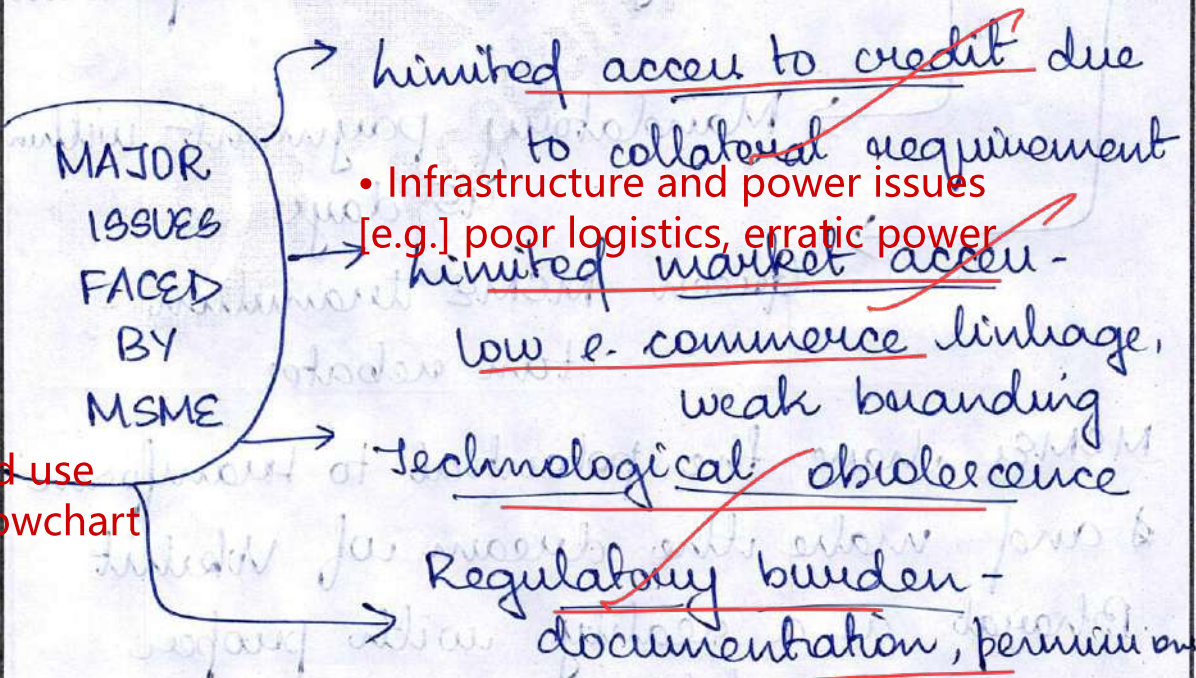 MAJOR
ISSUES
FACED
BY
MSME
Limited access to credit due
to collateral requirement
• Infrastructure and power issues
[e.g.] poor logistics, erratic power
Limited market access -
low e-commerce linkage,
weak branding
Technological obsolescence
d use
owchart
Regulatory burden -
documentation, permissions